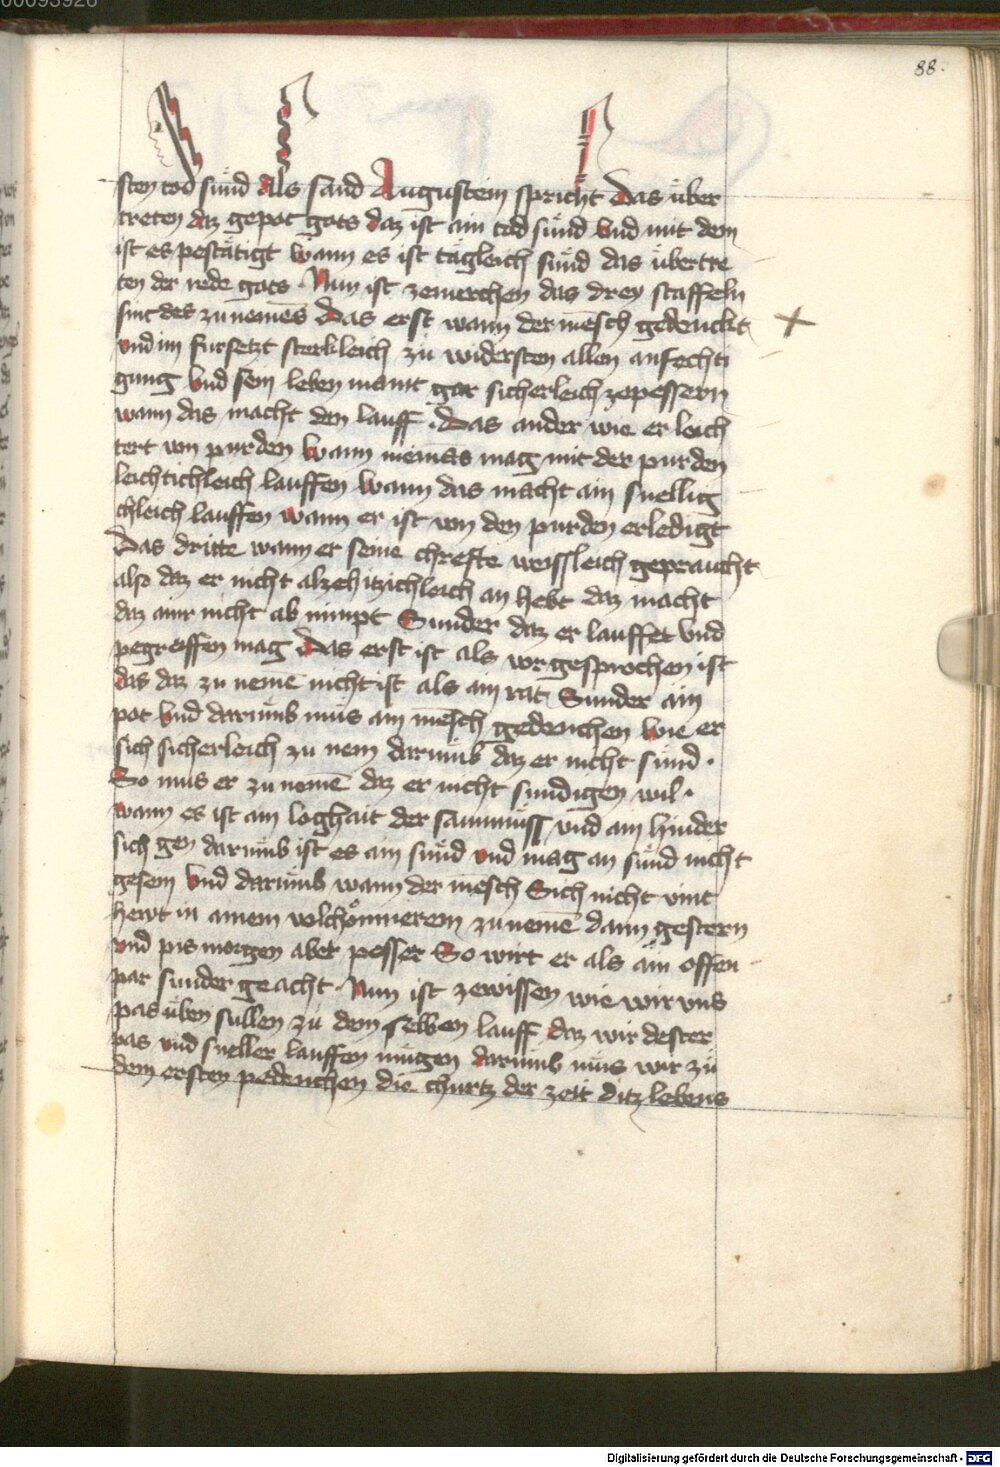 88.
sten tod sünd als sand Augustein spricht Das über
treten daz gepot gots daz ist ain tod sünd Vnd mit dem
ist es pestätigt wann es ist tägleich sünd das übertre
ten der rede gots. Nun ist zemerchen das drey staffeln
sint des zu nemēs Das erst wann der mēsch gedenckt
vnd im fursetzt sterkleich zu widersten allen anfechti
gung Vnd sein leben maint gar sicherleich zepessern
wann das macht den lauff. Das ander wie er leich
tert von purden Wann niemās mag mit der purden
leichtichleich lauffen Wann das macht ain snellig
chleich lauffen wann er ist von den purden erledigt
Das dritte wann er seine chrefte weissleich gepraucht
also daz er nicht alzehitzichleich an hebt daz macht
daz ainr nicht ab nimpt Sunder daz er lauffet Vnd
pegreiffen mag Das erst ist als vorgesprochen ist
das daz zu nemē nicht ist als ain rat Sunder ain
pot Vnd darumb mus ain mēsch gedenchen wie er
sich sicherleich zu nem darumb daz er nicht sünd.
So mus er zu nemē daz er nicht sundigen wil.
wann es ist ain loghait der saummüss vnd ain hinder
sich gen darumb ist es ain sünd vnd mag an sünd nicht
gesein Vnd darumb wann der mēsch Sich nicht vint
hewt in ainem volchömmerem zu nemē dann gestern
vnd pis morgen aber pesser So wirt er als ain offen
par sunder geacht. Nun ist zewissen wie wir vns
pas üben sullen zu dem selben lauff daz wir dester
pas vnd sneller lauffen mügen darumb müs wir zu
dem ersten pedenchen die churtz der zeit ditz lebens
Digitalisierung gefördert durch die Deutsche Forschungsgemeinschaft - DFG